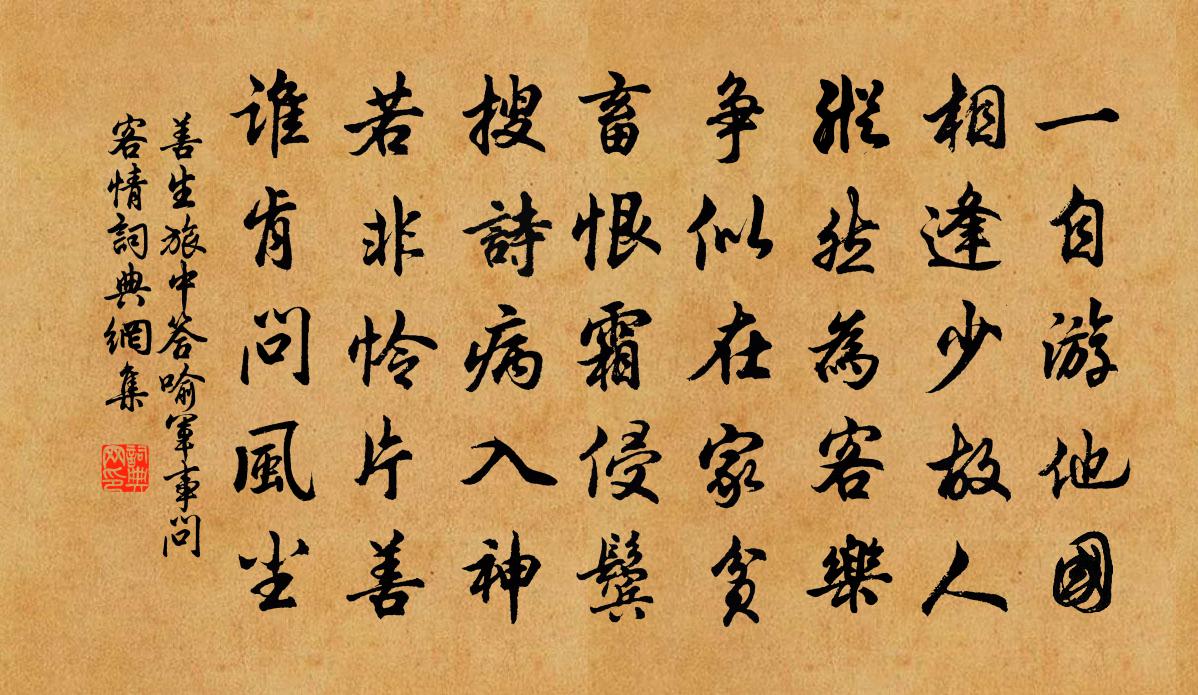 一自游他國
相逢少故人
縱然為客樂
争似在家貧
畜恨霜侵鬢
搜詩病入神
若非怜片善
誰肯問風尘
善生旅中答喻軍事問
客情詞典網集
詞典
网印